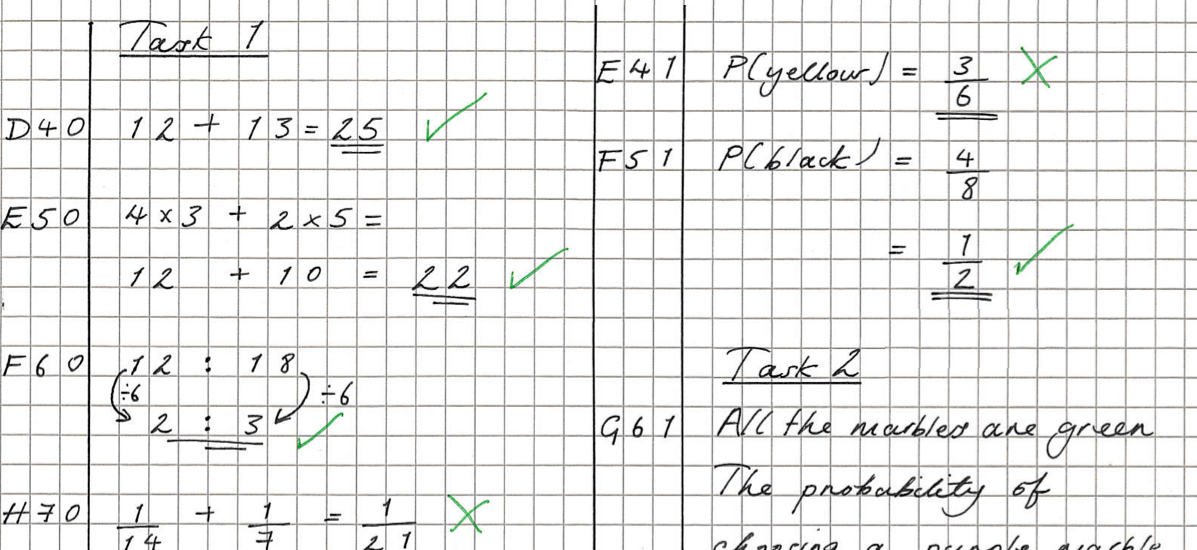 Task 1
D40 12 + 13 = 25
E50 4 × 3 + 2 × 5 =
12 + 10 = 22
F60 12 : 18
÷6 ÷6
2 : 3
H70 1/14 + 1/7 = 1/21
E41 P(yellow) = 3/6
F51 P(black) = 4/8
= 1/2
Task 2
G61 All the marbles are green
The probability of
choosing a purple marble